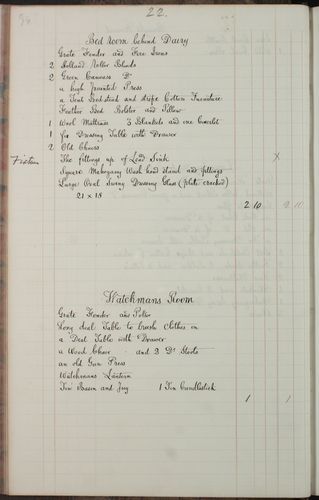 22.
Bed Room behind Dairy
Grate Fender and Fire Irons
2 Holland Roller Blinds
2 Green Canvass Do
a high painted Press
a Tent Bedstead and stripe Cotton Furniture
Feather Bed Bolster and Pillow
1 Wool Mattrass 3 Blankets and one Coverlet
1 fir Dressing Table with Drawer
2 Old Chairs
Fixture The fittings up of Lead Sink X
Square Mahogany Wash hand stand and fittings
Large Oval Swing Dressing Glass (plate cracked)
21 x 18
2 10 2 10
Watchmans Room
Grate Fender and Poker
Long deal Table to brush clothes on
a Deal Table with Drawer
a Wood Chair and 2 Do Stools
an old Gun Press
Watchmans Lantern
Tin Basin and Jug 1 Tin Candlestick
1 1